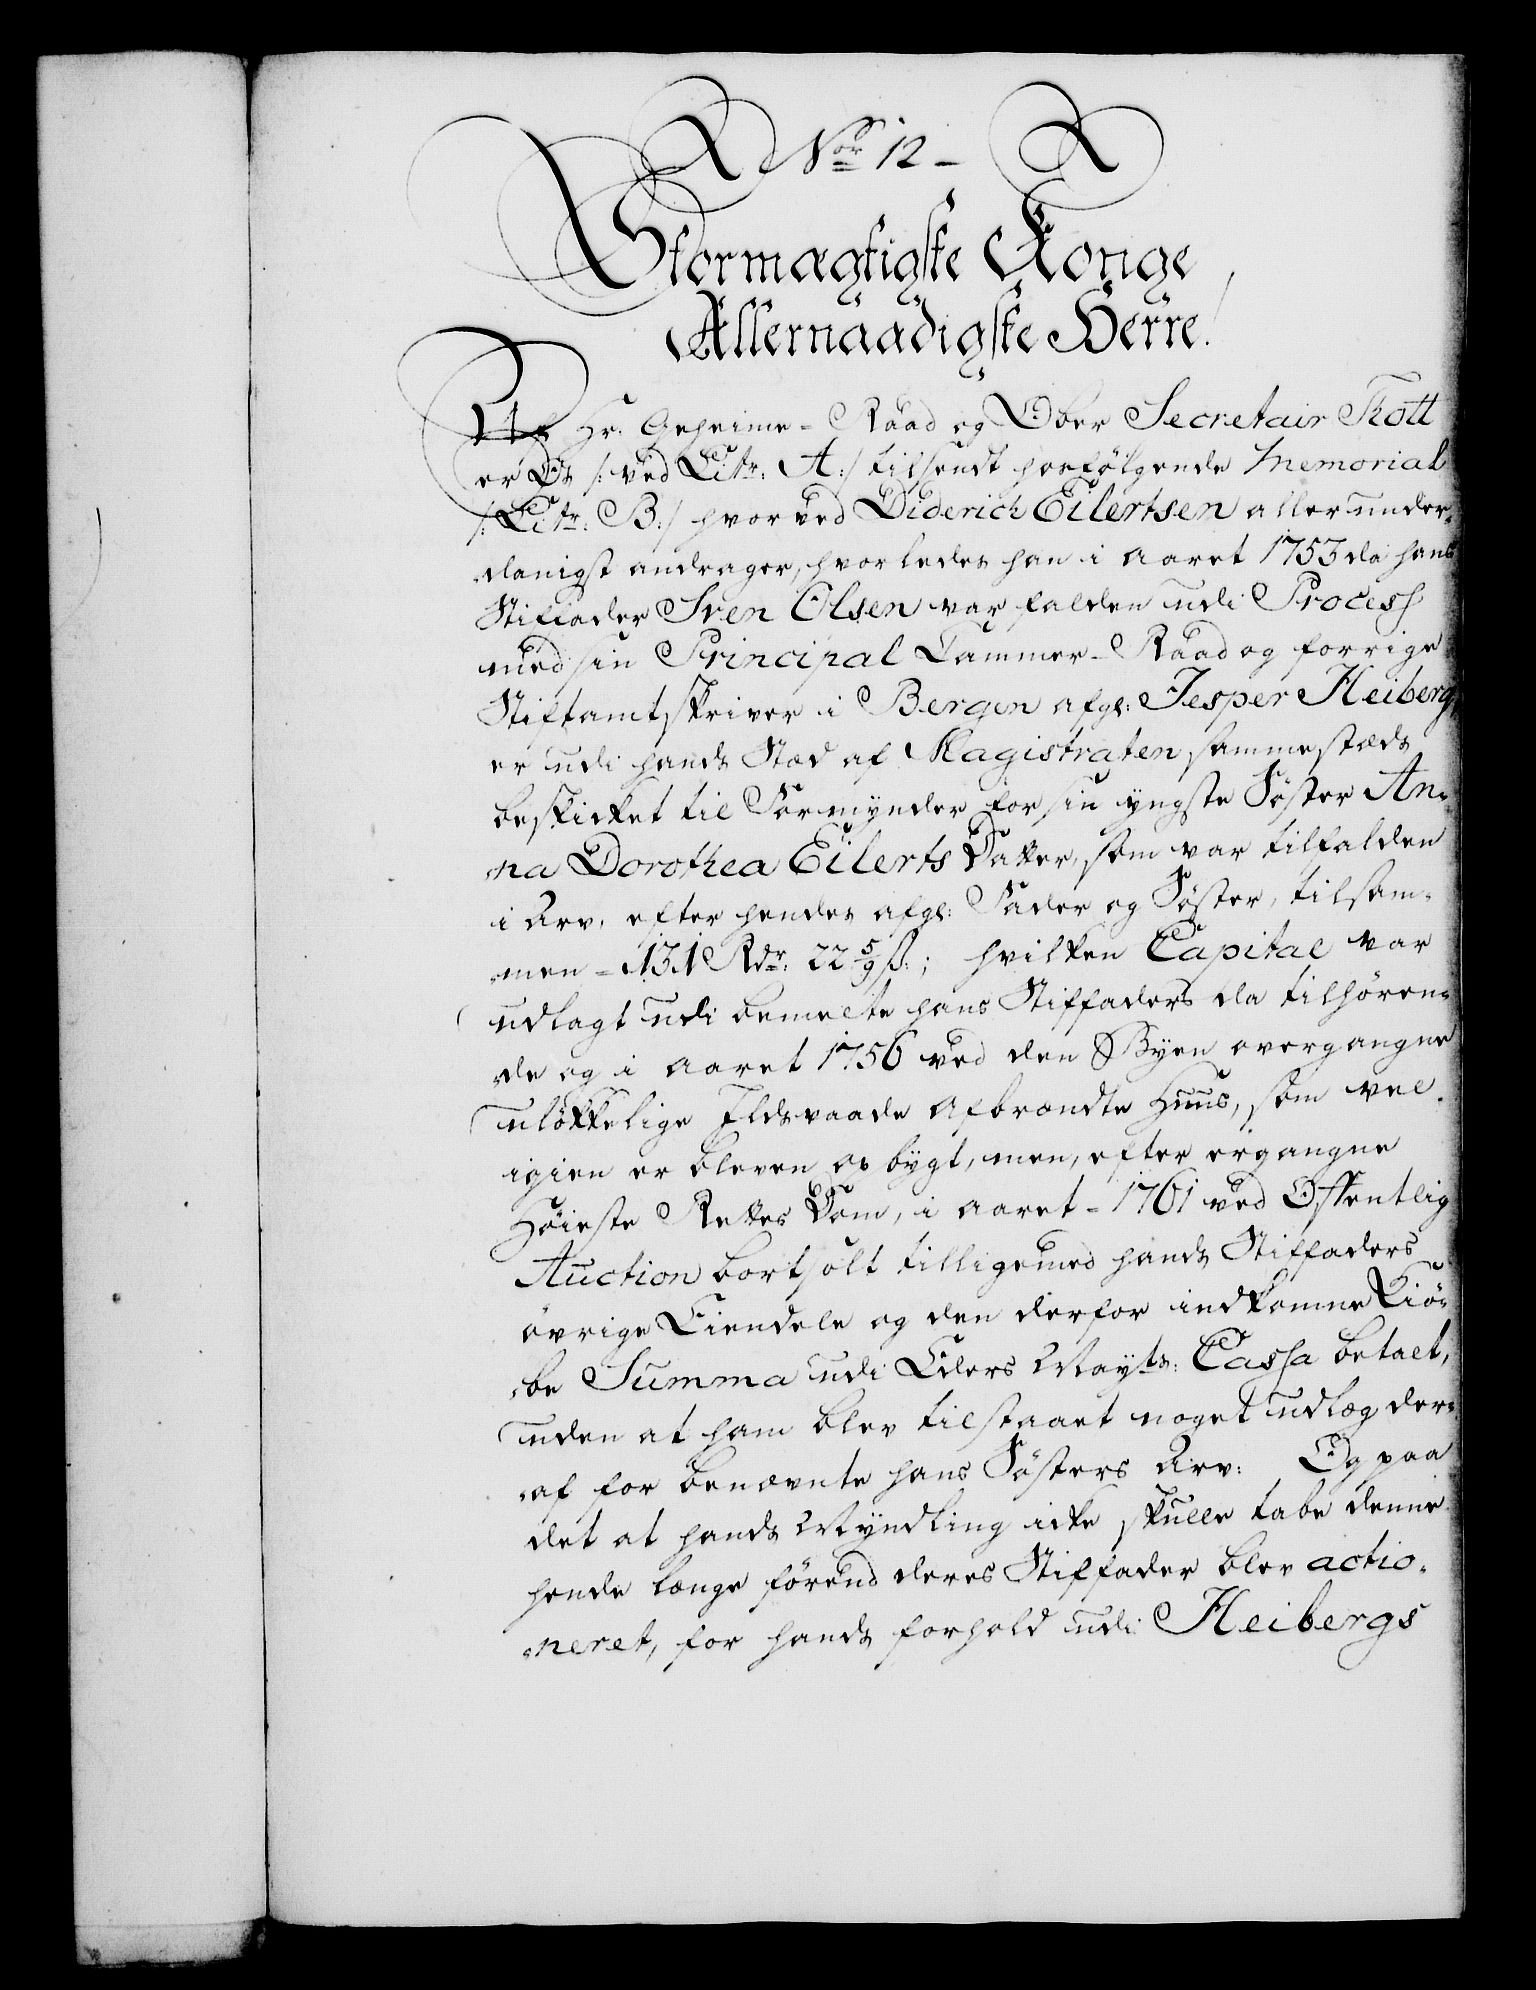 Nor 12 -
Stormægtigste Konge
Allernaadigste Herre!
Af Hr. Geheime-Raad og Ober Secretair Tott
er Os /: ved Litr: A:/ tilsendt hosfølgende Memorial
/: Litr: B:/ hvorved Diderich Eilertsen allerunder-
danigst andrager, hvorledes han i Aaret 1753 da hans
Stiffader Sven Olsen var falden udi Process
med sin Principal Cammer-Raad og forrige
Stiftamtskriver i Bergen afgl: Jesper Heiberg,
er udi hands Sted af Magistraten sammestæds
beskikket til Formynder for sin yngste Søster An-
na Dorothea Eilerts Datter, som var tilfalden
i Arv, efter hendes afgl: Fader og Søster, tilsam-
men - 131 Rdr: 22 5/9 ß:; hvilken Capital var
udlagt udi bemelte hans Stiffaders da tilhøren-
de og i Aaret 1756 ved den Byen overgangne
uløkkelige Ildsvaade Afbrændte Huus, som vel
igien er bleven opbygt, men, efter ergangne
Høieste Rettes Dom, i Aaret - 1761 ved Offentlig
Auction bortsolt tilligemed hands Stiffaders
øvrige Eiendele og den derfor indkomne Kiø-
be Summa udi Eders Mayts: Cassa betalt,
uden at ham blev tilstaaet noget udlæg der-
af for benævnte hans Søsters Arv: Og paa
det at hands Myndling icke skulle tabe denne
hende længe førend deres Stiffader blev actio-
neret, for hands forhold udi Heibergs